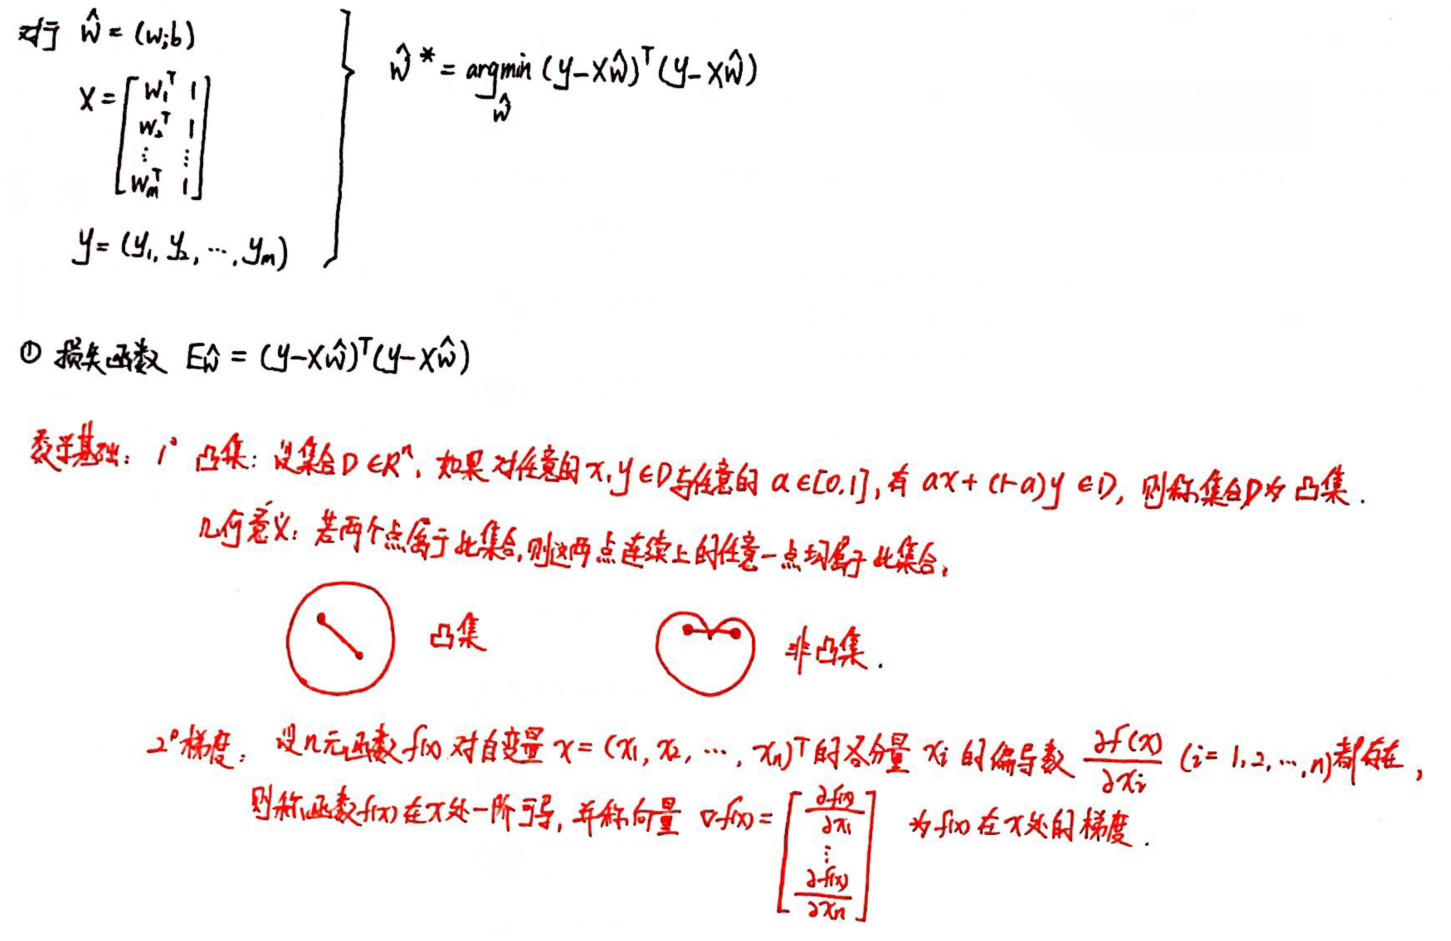 对于 ŵ = (w;b)
X = [ w₁ᵀ 1
w₂ᵀ 1
⋮ ⋮
wₘᵀ 1 ]
y = (y₁, y₂, ⋯, yₘ)
ŵ* = argmin (y-Xŵ)ᵀ(y-Xŵ)
ŵ
① 损失函数 Eŵ = (y-Xŵ)ᵀ(y-Xŵ)
数学基础: 1° 凸集: 设集合D∈Rⁿ, 如果对任意的x,y∈D与任意的 a∈[0,1], 有 ax+(1-a)y∈D, 则称集合D为凸集.
几何意义: 若两个点属于此集合,则这两点连续上的任意一点均属于此集合.
凸集 非凸集.
2° 梯度: 设n元函数f(x)对自变量 x=(x₁, x₂, ⋯, xₙ)ᵀ的各分量 xᵢ 的偏导数 ∂f(x)/∂xᵢ (i=1,2,⋯,n)都存在,
则称函数f(x)在x处一阶可导, 并称向量 ∇f(x) = [ ∂f(x)/∂x₁
⋮
∂f(x)/∂xₙ ] 为f(x)在x处的梯度.